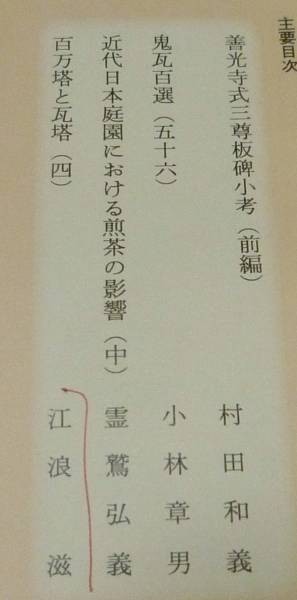 主要目次
善光寺式三尊板碑小考（前編） 村田和義
鬼瓦百選（五十六） 小林章男
近代日本庭園における煎茶の影響（中） 霊鷲弘義
百万塔と瓦塔（四） 江浪滋